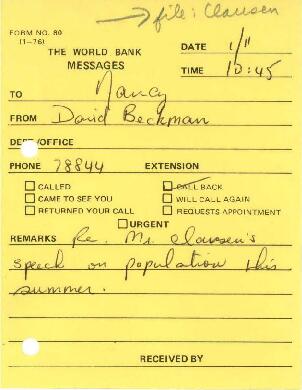 → file: Clausen
FORM NO. 80
(1-76)
THE WORLD BANK
MESSAGES
DATE 1/11
TIME 10:45
TO Nancy
FROM David Beckman
DEPT/OFFICE
PHONE 78844 EXTENSION
☐ CALLED ☐ CALL BACK
☐ CAME TO SEE YOU ☐ WILL CALL AGAIN
☐ RETURNED YOUR CALL ☐ REQUESTS APPOINTMENT
☐ URGENT
REMARKS Re. Mr. Clausen's
speech on population this
summer.
RECEIVED BY